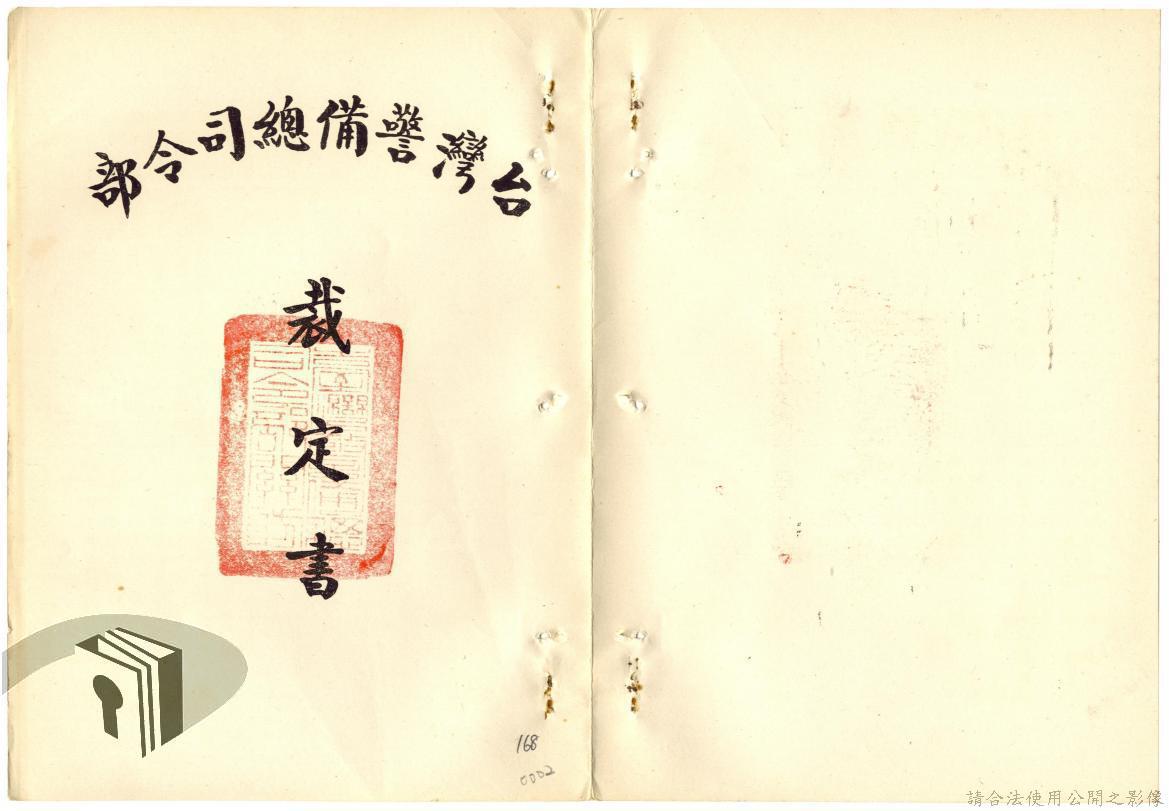 台灣警備總司令部
裁定書
168
0002
請合法使用公開之影像